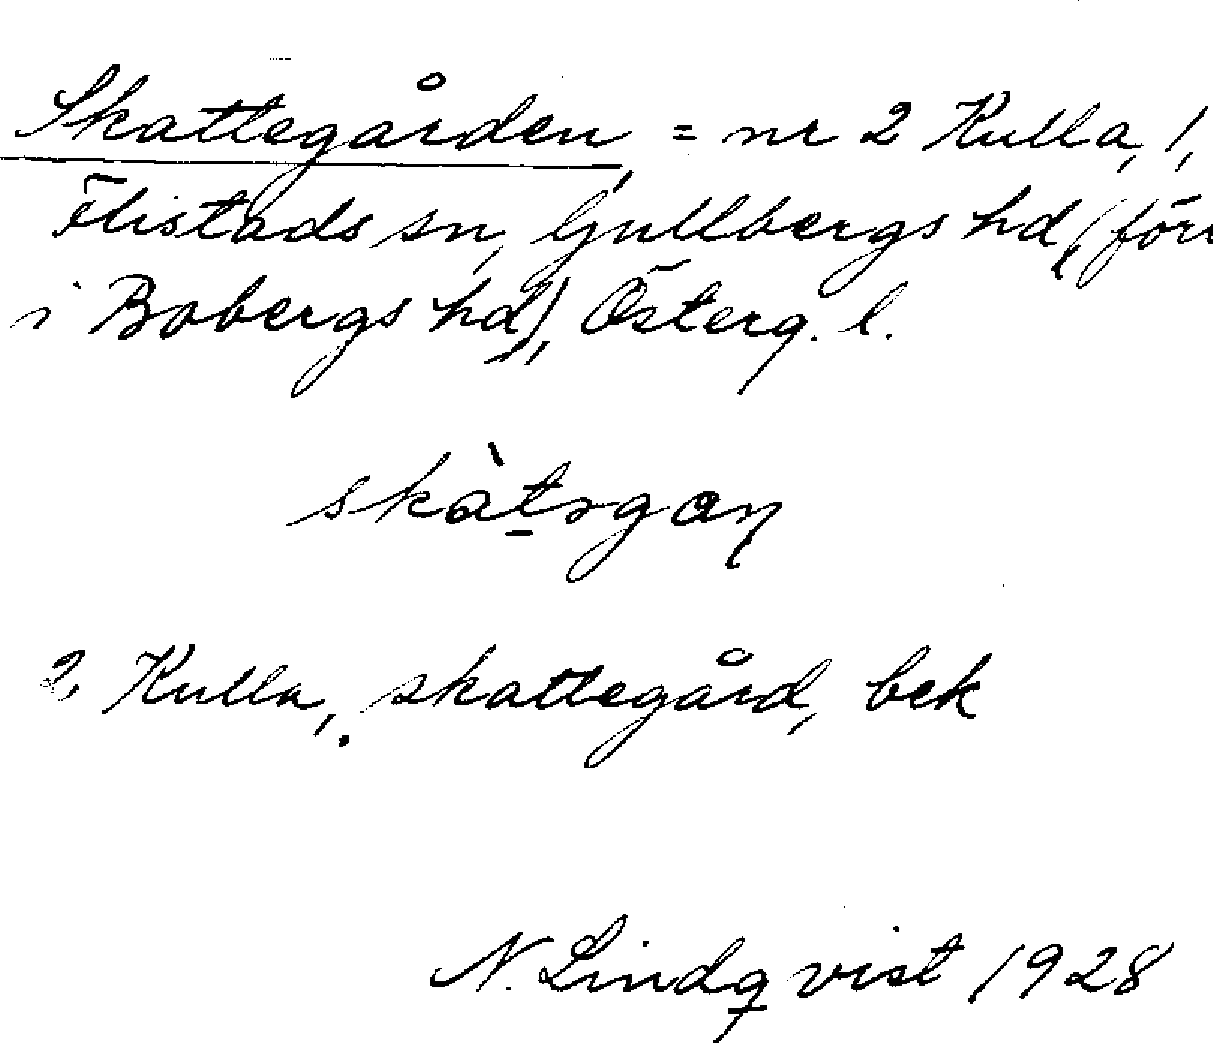 Skattegården, = nr 2 Kulla, 1,
Flistads sn, Gullbergs hd (förr
i Bobergs hd), Österg. l.
skàt̲rgan
2, Kulla, skattegård, bek
N. Lindqvist 1928